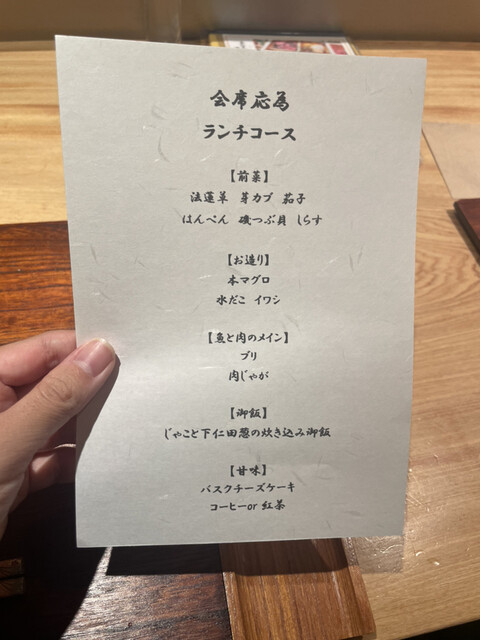 会席応為
ランチコース
【前菜】
法蓮草 芽カブ 茄子
はんぺん 磯つぶ貝 しらす
【お造り】
本マグロ
水だこ イワシ
【魚と肉のメイン】
ブリ
肉じゃが
【御飯】
じゃこと下仁田葱の炊き込み御飯
【甘味】
バスクチーズケーキ
コーヒーor 紅茶